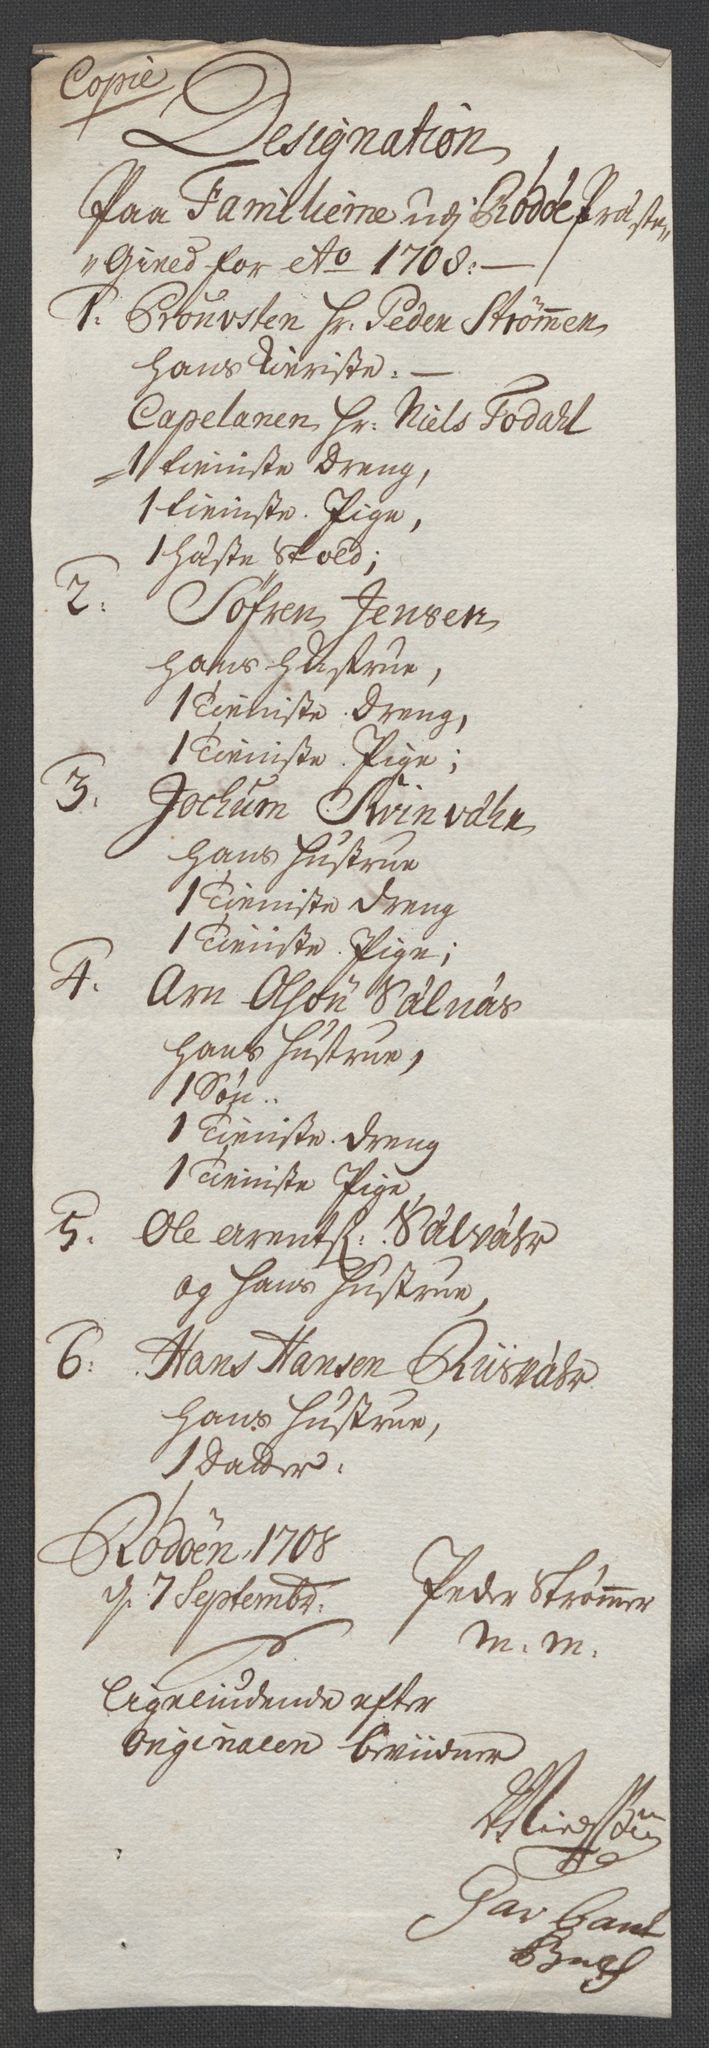 Copie
Designation
Paa Familierne udj Rödöe Præste„
„Gield for Ao 1708:—
1: Prouvsten Hr: Peder Strömmer
hans Kieriste:—
Capelanen Hr: Niels Fodahl
1 tieniste Dreng,
1 tieniste Pige,
1
2: Söfren Jensen
hans Hustrue,
1 Tieniste Dreng,
1 Tieniste Pige;
3: Jochum Svinvahr
hans Hustrue
1 Tieniste Dreng
1 Tieniste Pige;
4. Arn Olsön Sälnäs
hans Hustrue,
1 Sön..
1 Tieniste Dreng
1 Tieniste Pige
5. Ole Arents: Sälvähr
og hans Hustrue,
6: Hans Hansen Riisvähr
hans Hustrue,
1 Datter.
Rödöen 1708
d. 7 Septembr:
Peder Strömmer
m. m.
Ligeliudende efter
Originalen beviidner